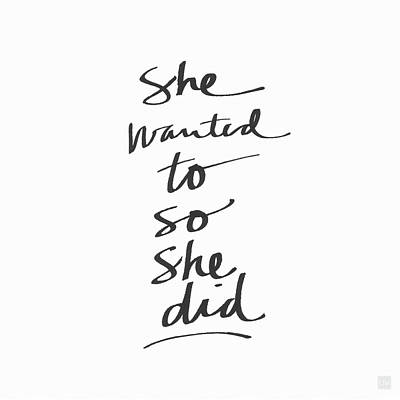 She
wanted
to
so
she
did